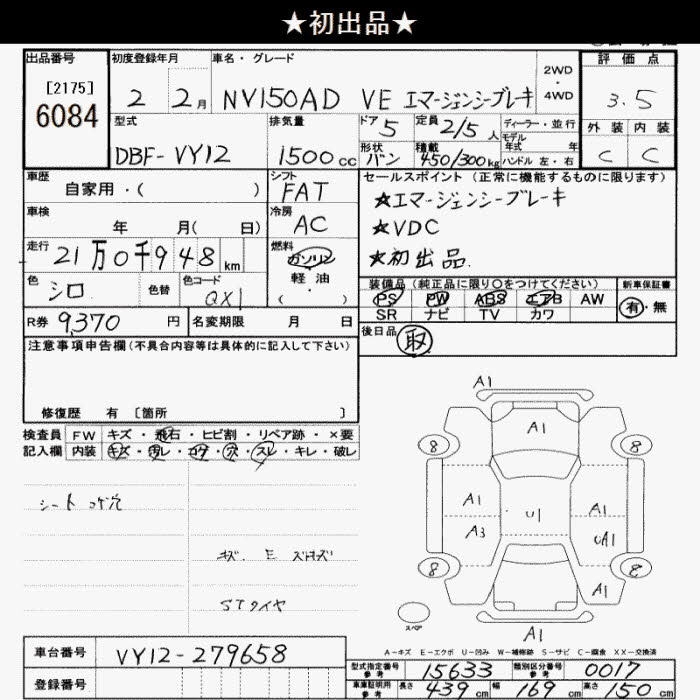 ★初出品★
出品番号 初度登録年月 車名・グレード 評価点
[2175]
6084
2 2月 NV150AD VE エマージェンシーブレーキ 2WD・4WD 3.5
型式 排気量 ドア 定員 ディーラー・並行 外装 内装
5 2/5人 モデル年式 年
DBF-VY12 1500cc 形状 バン 積載 450/300kg ハンドル 左・右 C C
車歴 シフト セールスポイント(正常に機能するものに限ります)
自家用・( ) FAT ★エマージェンシーブレーキ
車検 冷房 ★VDC
年 月( 日) AC ★初出品
走行 燃料
21万0千948km ガソリン
軽油
( )
色 色替 色コード 装備品(純正品に限り○をつけてください) 新車保証書
シロ QX1 PS PW ABS エアB AW 有・無
SR ナビ TV カワ
R券 9,370円 名変期限 月 日 後日品 取
注意事項申告欄(不具合内容等は具体的に記入して下さい)
修復歴 有 [箇所 ]
検査員 FW キズ・飛石・ヒビ割・リペア跡・×要
記入欄 内装 キズ・汚レ・コゲ・穴・スレ・キレ・破レ
シート コゲ穴
キズ E
STタイヤ
A1
A1
8 8
A1 U1 A1
A3 UA1
8 8
A1
スペア
A1
A-キズ E-エクボ U-凹み W-補修跡 S-サビ C-腐食 XX-交換済
車台番号 VY12-279658
登録番号
型式指定番号 参考 15633 類別区分番号 参考 0017
車庫証明用 参考 長さ 439cm 幅 169cm 高さ 150cm